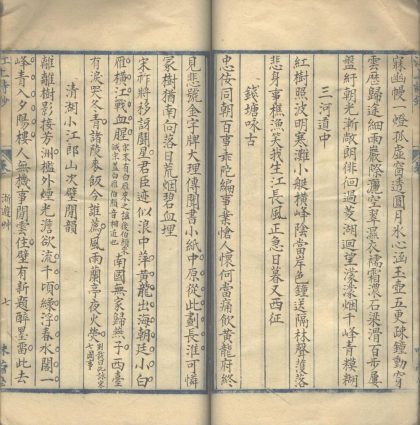 寐幽幔一燈孤虛窗透圓月水心涵玉壺五更疎鐘動穿
雲歷歸途細雨巖際灑空翠濕衣襦霜濃石梁滑百步屢
盤紆朝光漸敞朗徘徊過菱湖迴望濛濛烟千峰青糢糊
三河道中
紅樹照波明寒灘小艇橫峰陰當岸色鐘送隔林聲落
悲身事樵漁笑我生江長風正急日暮又西征
錢塘咏古
忠佞同朝百事乖綸事業愴人懷何當痛飲黃龍府終
見悲號金字牌大理傳聞書小紙中原從此劃長淮可憐
冢樹猶南向落日荒烟碧血埋
宋祚將移訝星君臣迹似浪中萍黃龍出海朝廷小白
雁橫江戰血腥南國無家歸燕子西臺
有淚哭冬青諸陵麥飯今誰薦風雨蘭亭夜火熒
清湖小江郎山次壁間韻
離離樹影接芳洲檻外煙光澹欲流千頃綠浮春水闊一
峰青入夕陽樓人無機事閒雲住壁有新題醉墨留此去
卷
遊艸
七